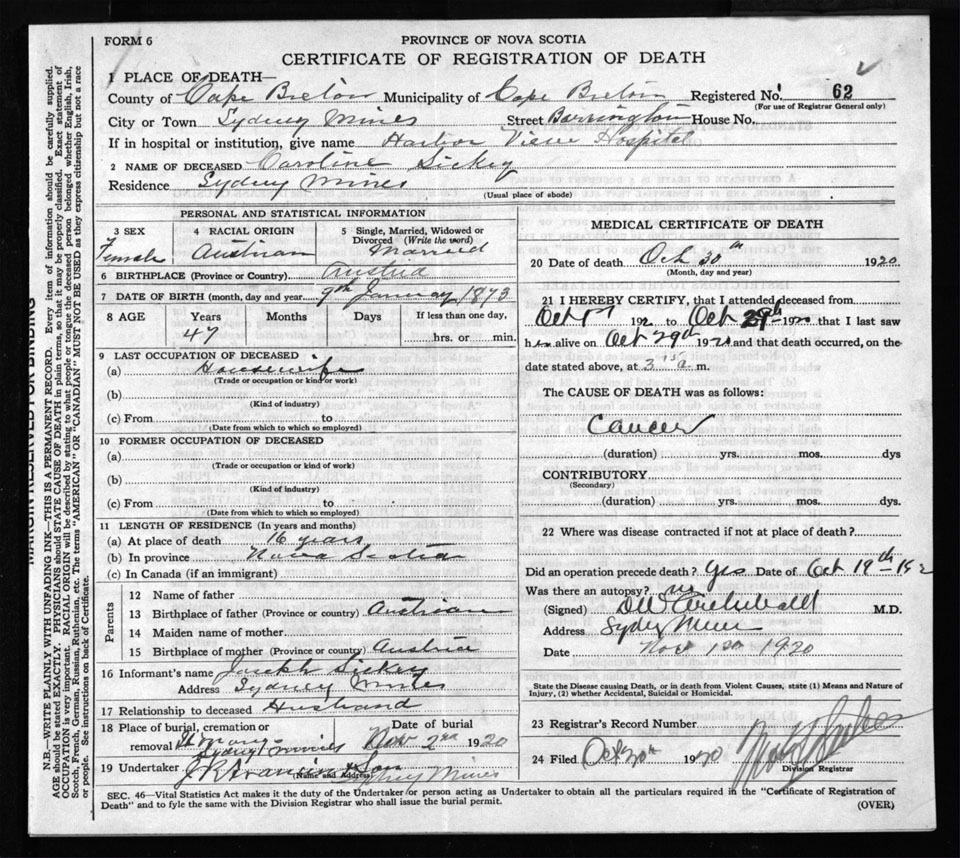 FORM 6
PROVINCE OF NOVA SCOTIA
CERTIFICATE OF REGISTRATION OF DEATH
1 PLACE OF DEATH—
County of Cape Breton Municipality of Cape Breton Registered No. 62
(For use of Registrar General only)
City or Town Sydney Mines Street Barrington House No.
If in hospital or institution, give name Harbor View Hospital
2 NAME OF DECEASED Caroline Sickey
Residence Sydney Mines
(Usual place of abode)
PERSONAL AND STATISTICAL INFORMATION
3 SEX
Female
4 RACIAL ORIGIN
Austrian
5 Single, Married, Widowed or
Divorced (Write the word)
Married
6 BIRTHPLACE (Province or Country) Austria
7 DATE OF BIRTH (month, day and year) 9th January, 1873
8 AGE
Years
47
Months
Days
If less than one day,
hrs. or min.
9 LAST OCCUPATION OF DECEASED
(a) Housewife
(Trade or occupation or kind or work)
(b)
(Kind of industry)
(c) From to
(Date from which to which so employed)
10 FORMER OCCUPATION OF DECEASED
(a)
(Trade or occupation or kind of work)
(b)
(Kind of industry)
(c) From to
(Date from which to which so employed)
11 LENGTH OF RESIDENCE (In years and months)
(a) At place of death 16 years
(b) In province Nova Scotia
(c) In Canada (if an immigrant)
Parents
12 Name of father
13 Birthplace of father (Province or country) Austrian
14 Maiden name of mother
15 Birthplace of mother (Province or country) Austria
16 Informant's name Joseph Sickey
Address Sydney Mines
17 Relationship to deceased Husband
18 Place of burial, cremation or
removal Sydney Mines
Date of burial
Nov 2nd 1920
19 Undertaker Son Sydney Mines
(Name and Address)
MEDICAL CERTIFICATE OF DEATH
20 Date of death Oct 30th 1920
(Month, day and year)
21 I HEREBY CERTIFY, that I attended deceased from
Oct 192 to Oct 29th 192 that I last saw
h alive on Oct 29th 192 and that death occurred, on the
date stated above, at 3 15 a. m.
The CAUSE OF DEATH was as follows:
Cancer
(duration) yrs. mos. dys
CONTRIBUTORY
(Secondary)
(duration) yrs. mos. dys.
22 Where was disease contracted if not at place of death?
Did an operation precede death? Yes Date of Oct 19th
Was there an autopsy? no
(Signed) Archibald M.D.
Address Sydney Mines
Date Nov 1st 1920
State the Disease causing Death, or in death from Violent Causes, state (1) Means and Nature of
Injury, (2) whether Accidental, Suicidal or Homicidal.
23 Registrar's Record Number
24 Filed Oct 30th 1920
Division Registrar
SEC. 46—Vital Statistics Act makes it the duty of the Undertaker or person acting as Undertaker to obtain all the particulars required in the "Certificate of Registration of
Death" and to fyle the same with the Division Registrar who shall issue the burial permit.
(OVER)
MARGIN RESERVED FOR BINDING
N.B.—WRITE PLAINLY WITH UNFADING INK—THIS IS A PERMANENT RECORD. Every item of information should be carefully supplied.
AGE should be stated EXACTLY. PHYSICIANS should STATE CAUSE OF DEATH in plain terms, so that it may be properly classified. Exact statement of
OCCUPATION is very important. RACIAL ORIGIN will be described by stating to what people or tongue the deceased person belonged whether English, Irish,
Scotch, French, German, Russian, Ruthenian, etc. The terms "AMERICAN" OR "CANADIAN" MUST NOT BE USED as they express citizenship but not a race
or people. See instructions on back of Certificate.